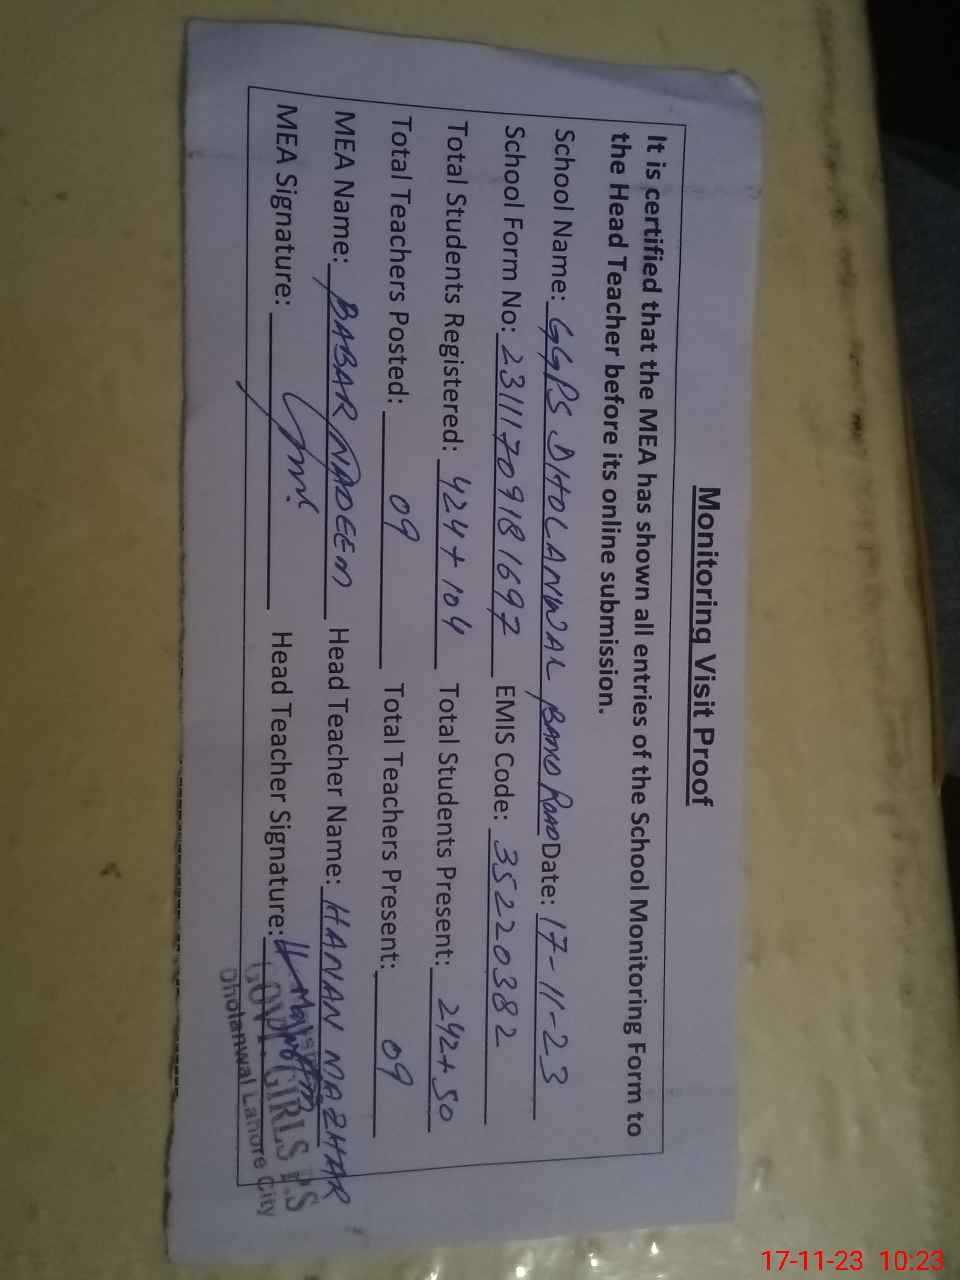 Monitoring Visit Proof
It is certified that the MEA has shown all entries of the School Monitoring Form to
the Head Teacher before its online submission.
School Name: GGPS DHOLANWAL BAND ROAD Date: 17-11-23
School Form No: 23111709181697 EMIS Code: 35220382
Total Students Registered: 424+104 Total Students Present: 242+50
Total Teachers Posted: 09 Total Teachers Present: 09
MEA Name: BABAR NADEEM Head Teacher Name: HANAN MAZHAR
MEA Signature: Head Teacher Signature:
GOVT. GIRLS P.S
Dholanwal Lahore City
17-11-23 10:23